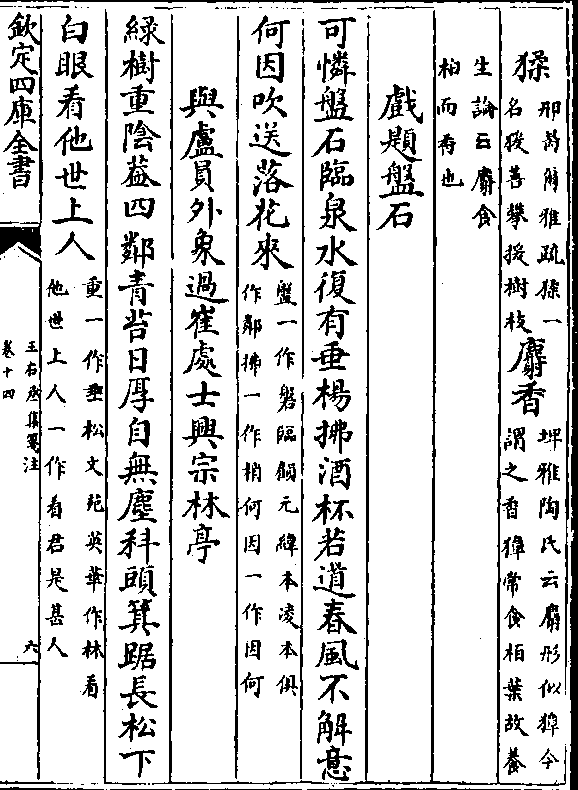 猱邢昺爾雅疏猱一
名猨善攀援樹枝
麝香埤雅陶氏云麝形似獐今
謂之香獐常食柏葉故養
生論云麝食
柏而香也
戲題盤石
可憐盤石臨泉水復有垂楊拂酒杯若道春風不解意
何因吹送落花來盤一作磐臨顧元緯本凌本俱
作鄰拂一作梢何因一作因何
與盧員外象過崔處士興宗林亭
綠樹重陰蓋四鄰青苔日厚自無塵科頭箕踞長松下
白眼看他世上人重一作垂松文苑英華作林看
他世上人一作看君是甚人
欽定四庫全書
王右丞集箋注
卷十四
六